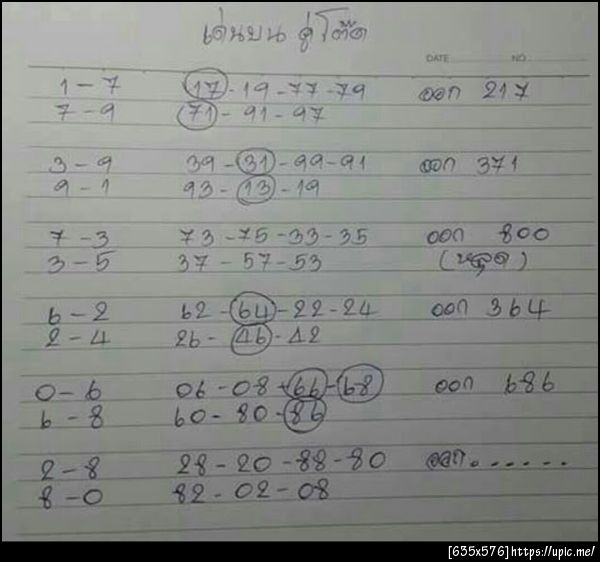 เด่นบน คู่โต๊ด
DATE NO.
1 - 7 17 - 19 - 77 - 79 ออก 217
7 - 9 71 - 91 - 97
3 - 9 39 - 31 - 99 - 91 ออก 371
9 - 1 93 - 13 - 19
7 - 3 73 - 75 - 33 - 35 ออก 800
3 - 5 37 - 57 - 53 (หลุด)
6 - 2 62 - 64 - 22 - 24 ออก 364
2 - 4 26 - 46 - 42
0 - 6 06 - 08 - 66 - 68 ออก 686
6 - 8 60 - 80 - 86
2 - 8 28 - 20 - 88 - 80 ออก......
8 - 0 82 - 02 - 08
[635x576] https://upic.me/